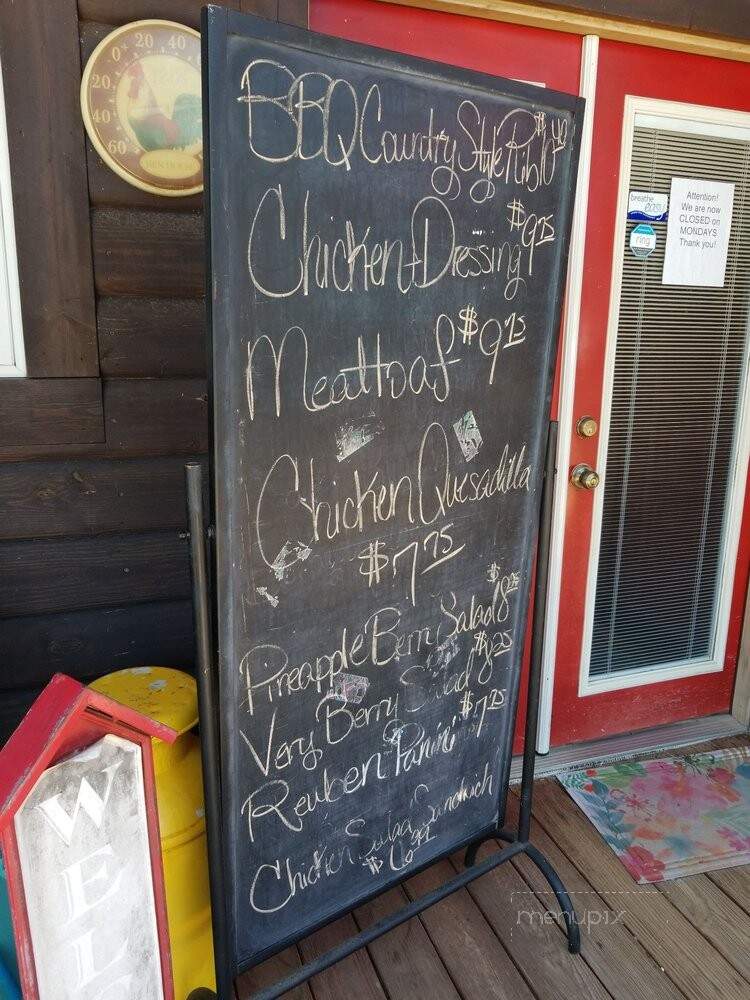 BBQ Country Style Rib $10.40
Chicken + Dressing $9.75
Meatloaf $9.75
Chicken Quesadilla
$7.75
Pineapple Berri Salad $8.25
Very Berry Salad $8.25
Reuben Panini $7.75
Chicken Salad Sandwich
breathe
easy
ring
Attention!
We are now
CLOSED on
MONDAYS
Thank you!
20 0 20 40
40
60
WEL
menupix